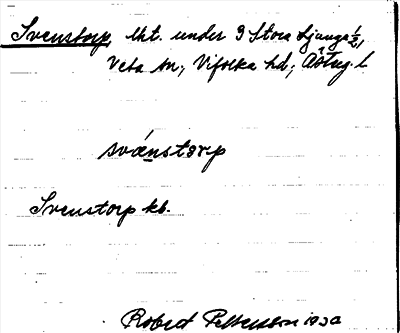 Svenstorp, lht. under 3 Stora Ljunga 1/2,
Veta sn, Vifolka hd, Östug. l.
svȧnstɔrp
Svenstorp kb.
Robert Pettersson 1930